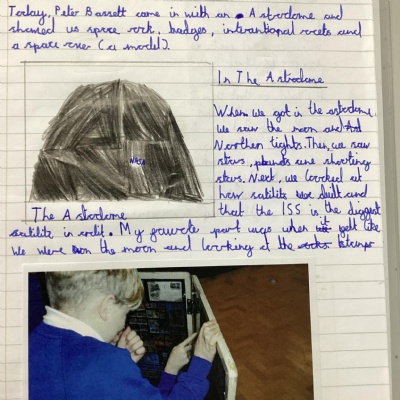 Today, Peter Bassett came in with an Astrodome and
showed us space rock, badges, interantional rocets and
a space rover (a model).
In The Astrodome
When we got in the astrodome
we saw the moon and
Northen lights. Then, we saw
stars, and shooting
stars. Next, we loocked at
how satilits built and
that the ISS is the biggest
NASA
The Astrodome
satilite in orbit. My favroute part was when it felt like
we were on the moon and loocking at the